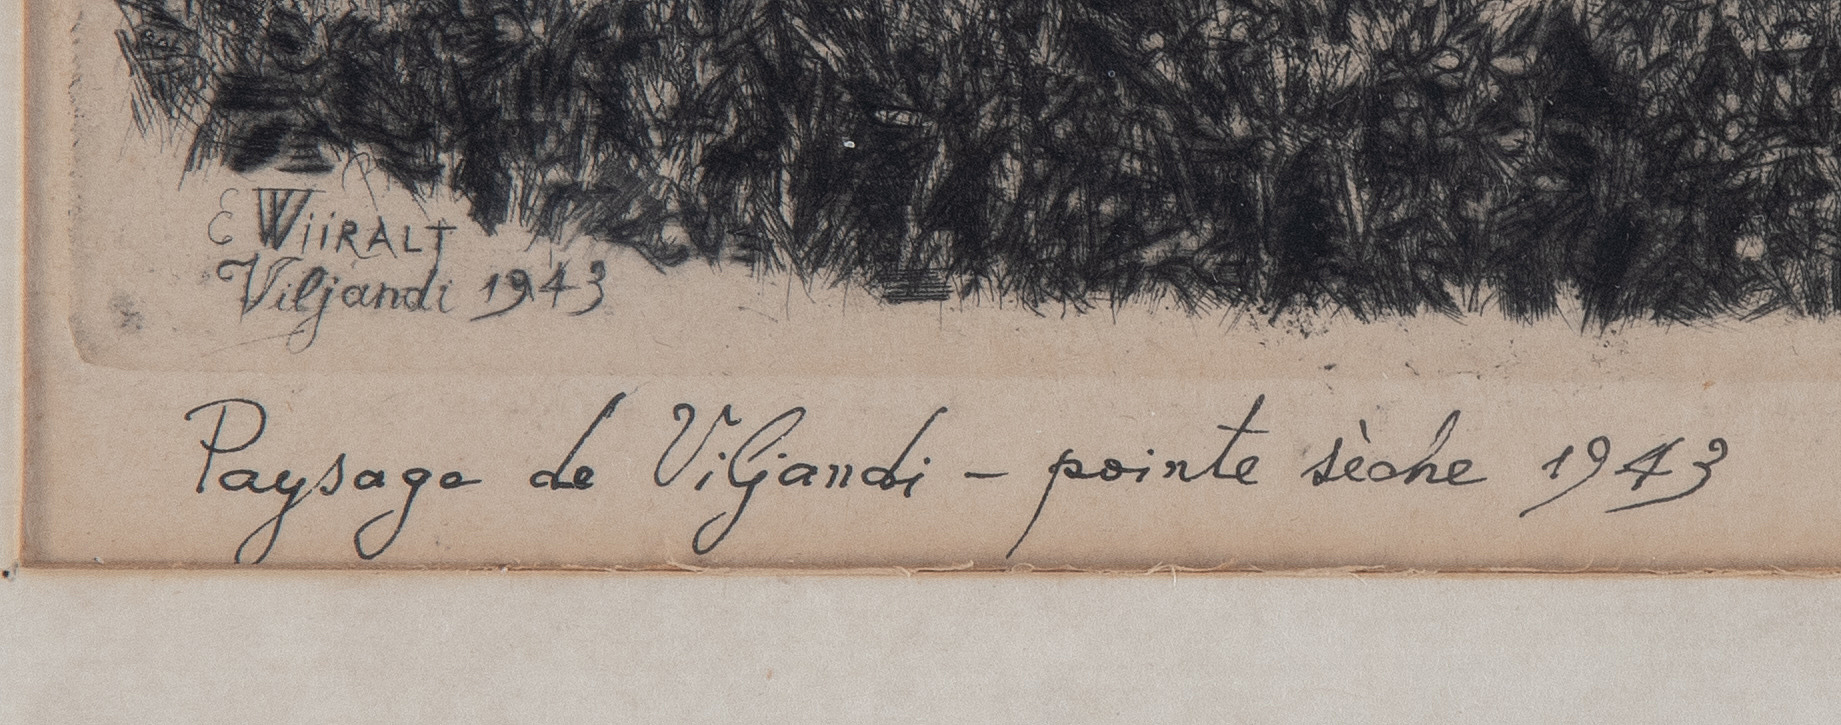 E WiiRALT
Viljandi 1943
Paysage de Viljandi – pointe sèche 1943